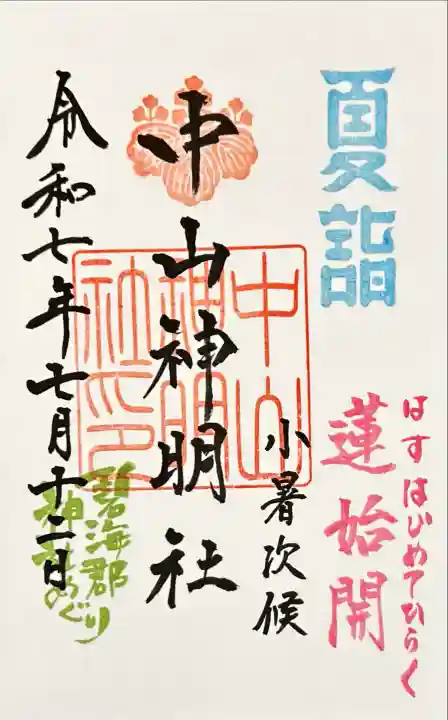 夏詣
はすはじめてひらく
蓮始開
小暑次候
中山神明社
中山
神明
社印
令和七年七月十二日
碧海郡
神社めぐり